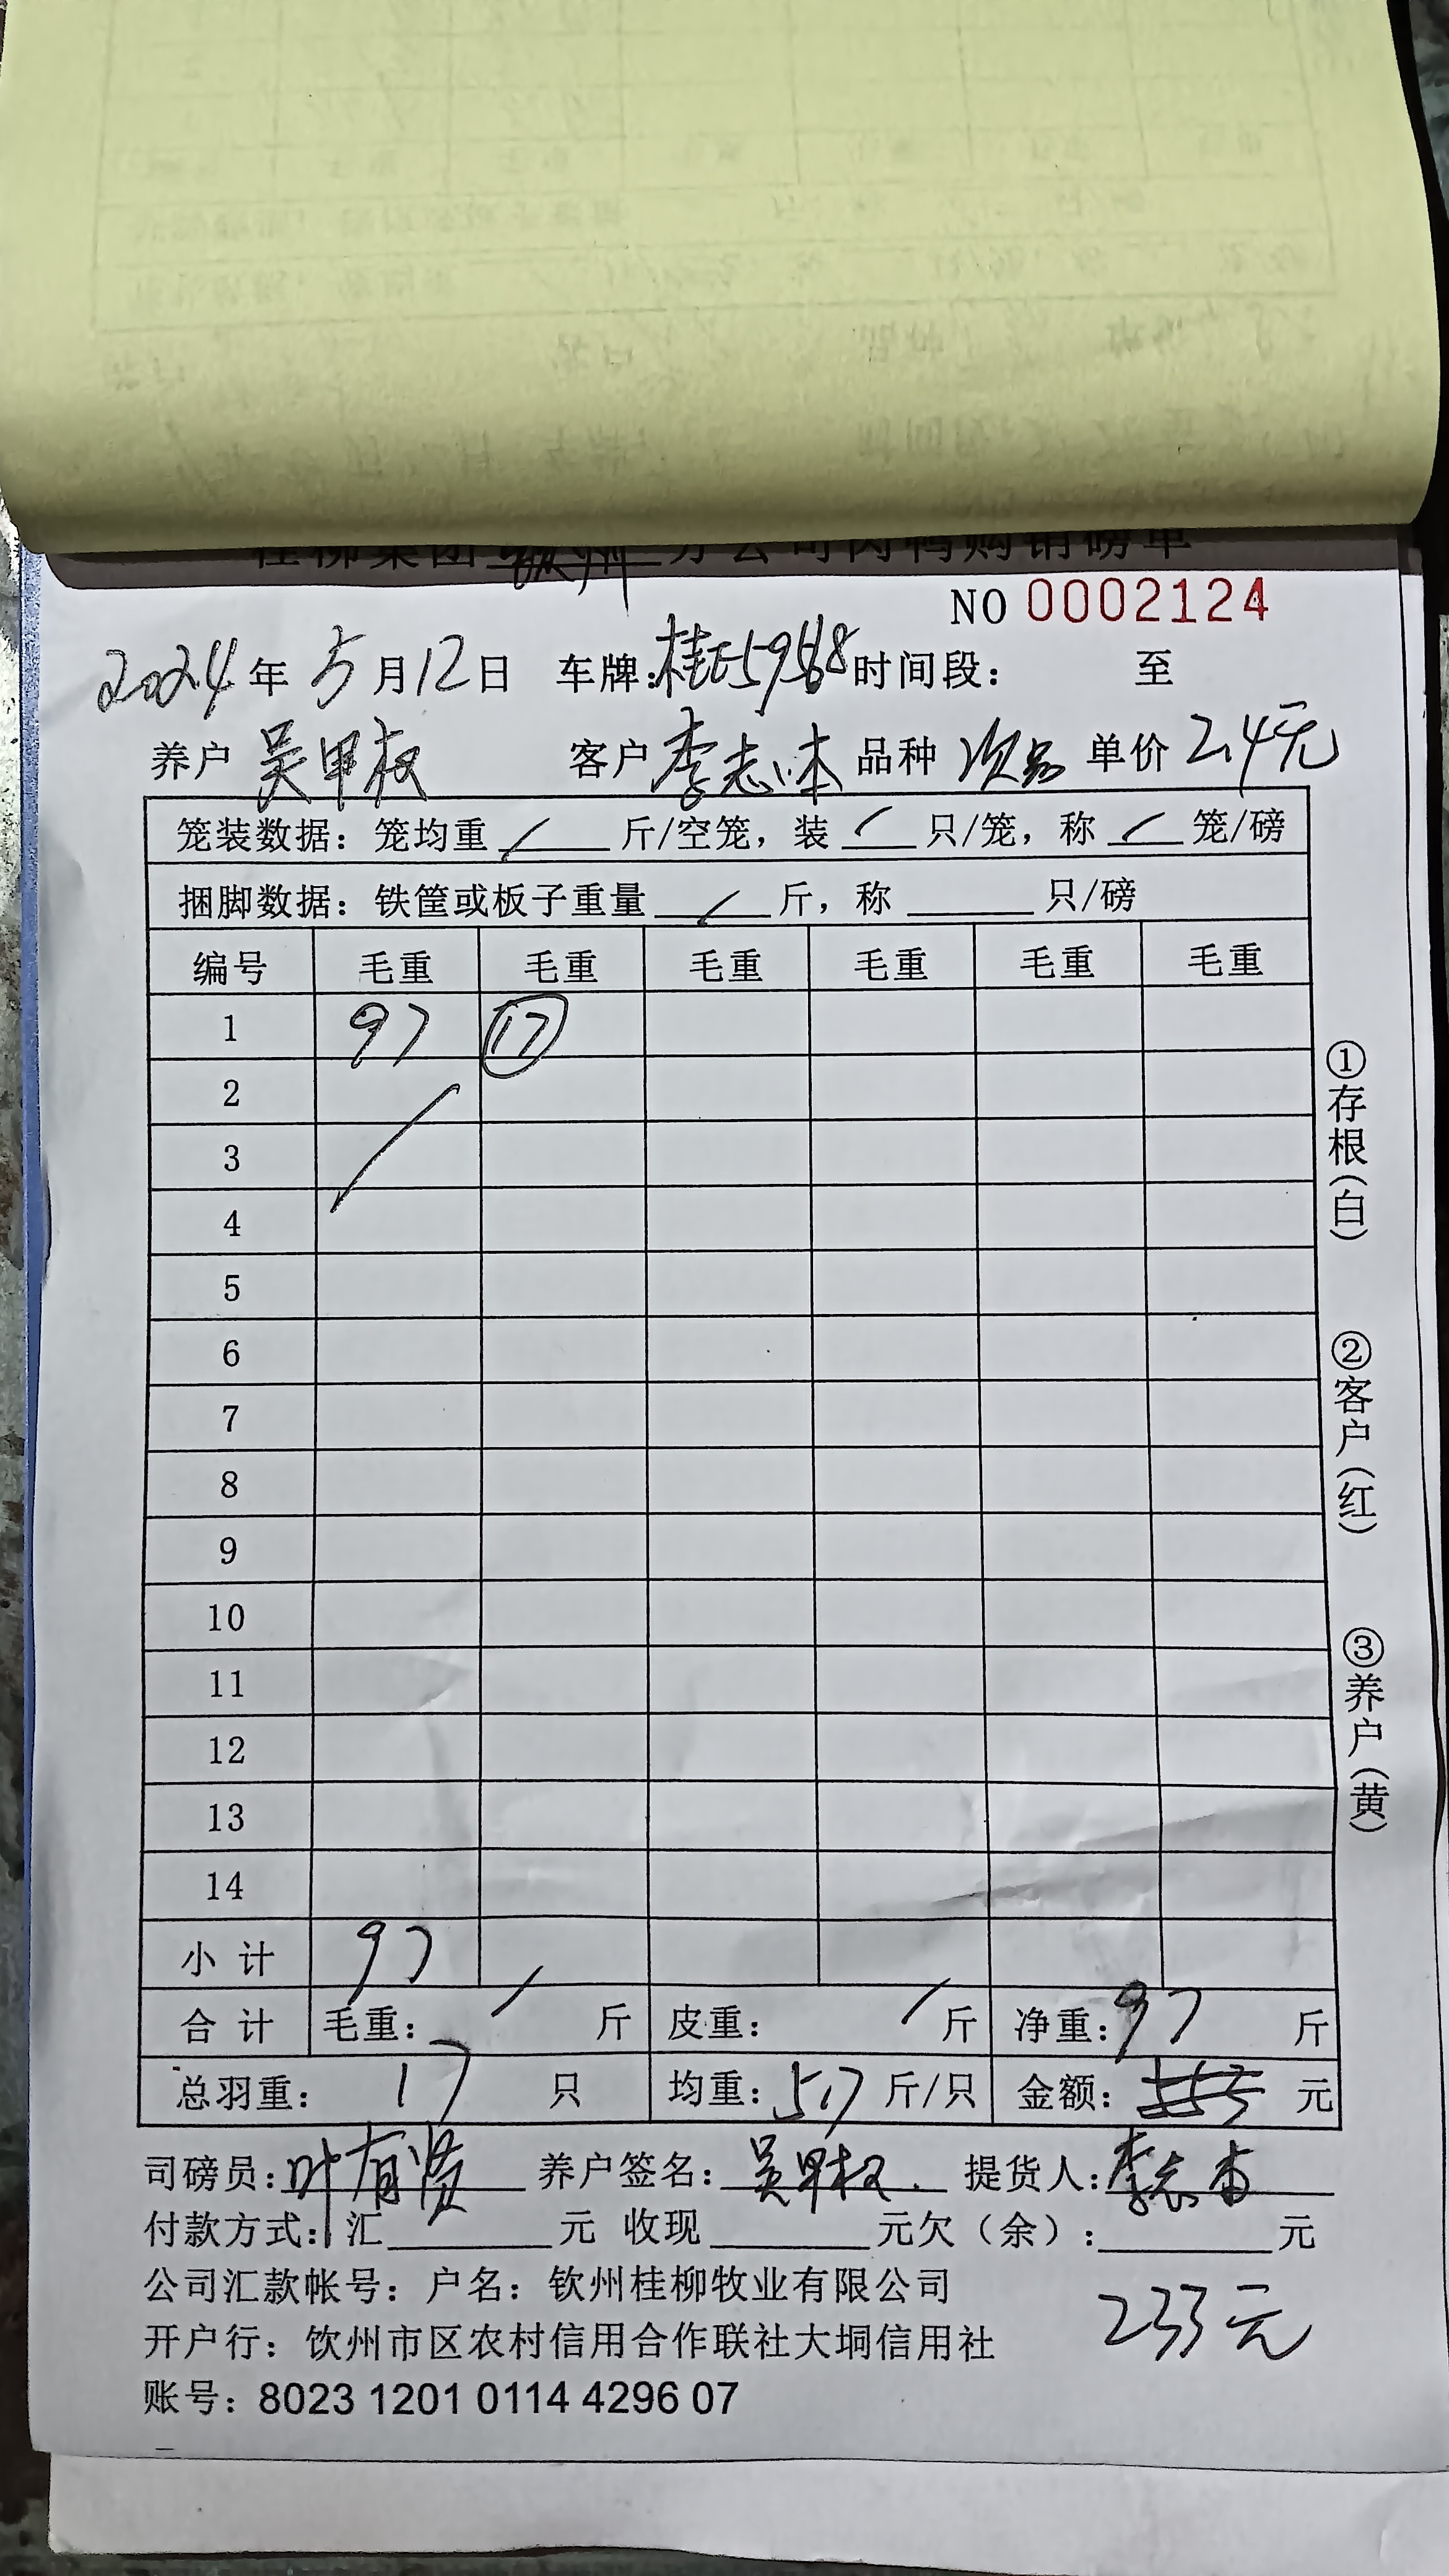 桂柳集团 钦州 分公司肉鸭购销磅单
NO 0002124
2024年 5月12日 车牌: 时间段: 至
养户 吴甲权 客户 李志本 品种 次品 单价 2.4元
笼装数据: 笼均重 / 斤/空笼, 装 / 只/笼, 称 / 笼/磅
捆脚数据: 铁筐或板子重量 / 斤, 称 只/磅
编号 毛重 毛重 毛重 毛重 毛重 毛重
1 97 17
2
3
4
5
6
7
8
9
10
11
12
13
14
小计 97
合计 毛重: / 斤 皮重: / 斤 净重: 97 斤
总羽重: 17 只 均重: 5.7 斤/只 金额: 元
司磅员: 叶有贤 养户签名: 吴甲权. 提货人: 李志本
付款方式: 汇 元 收现 元欠(余): 元
公司汇款帐号: 户名: 钦州桂柳牧业有限公司
233元
开户行: 钦州市区农村信用合作联社大垌信用社
账号: 8023 1201 0114 4296 07
①存根(白)
②客户(红)
③养户(黄)